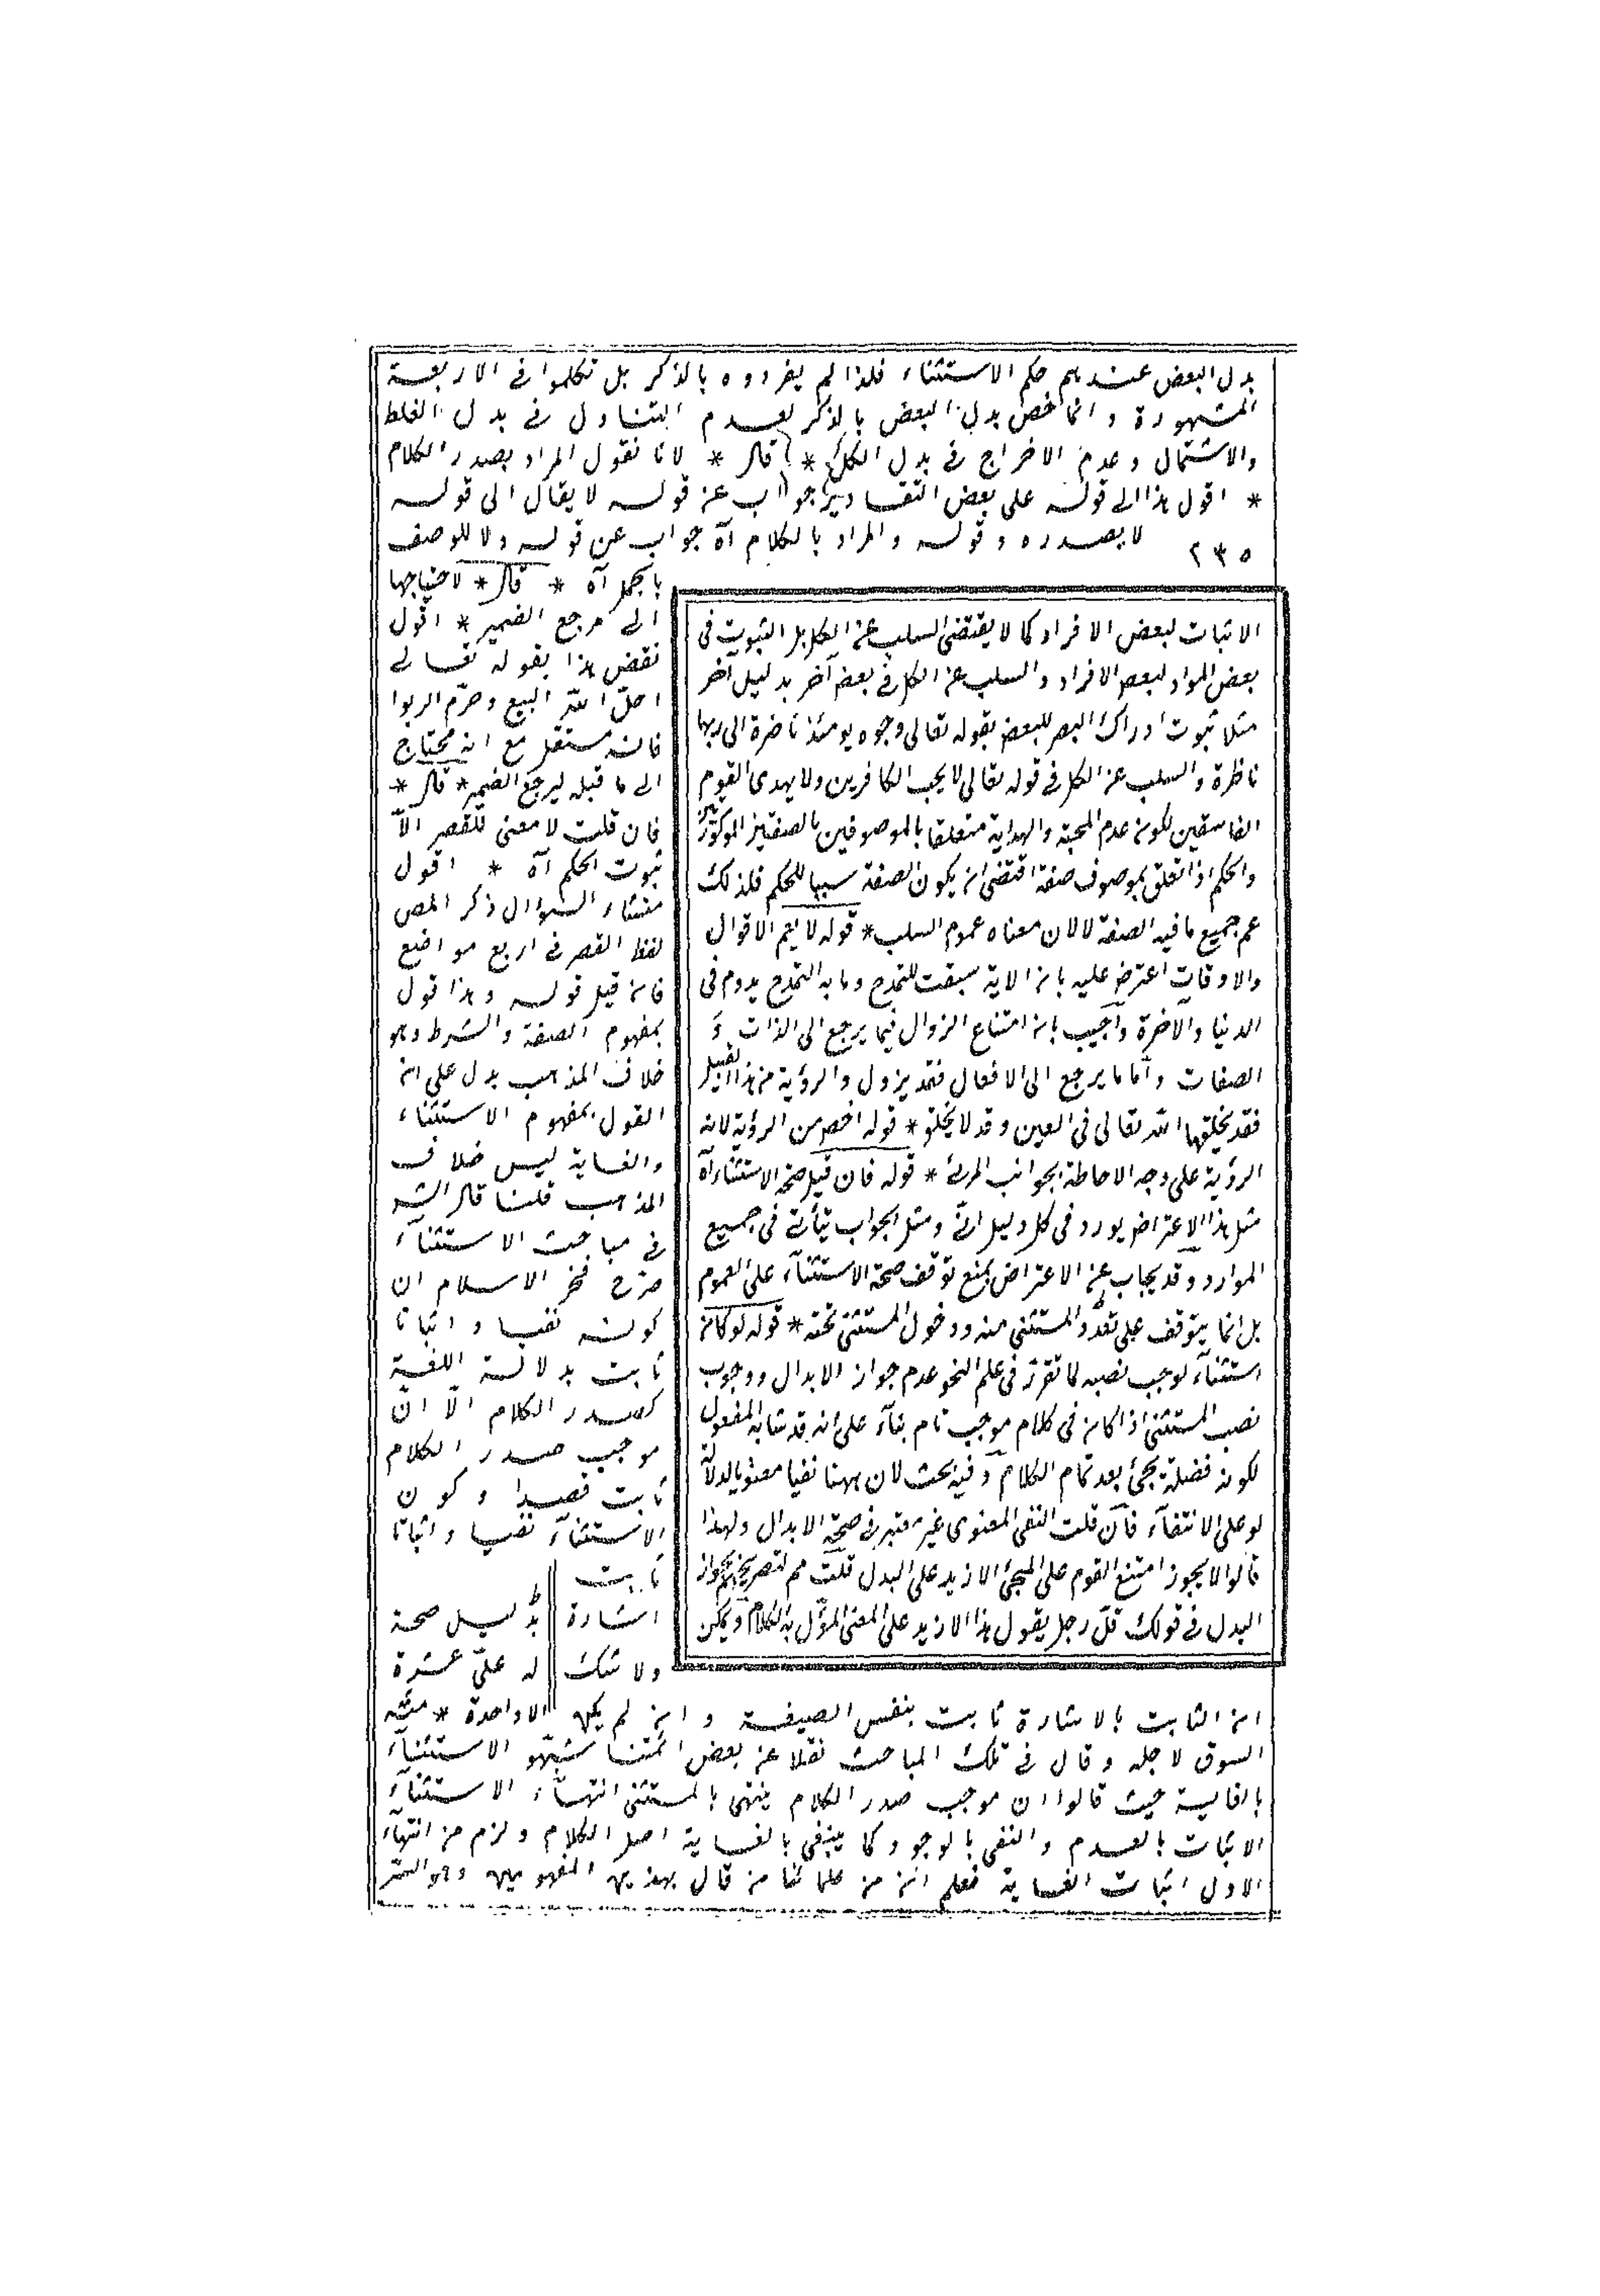 بدل البعض عندهم حكم الاستثناء فلذا لم يفردوه بالذكر بل تكلموا فى الاربعة
المشهورة وانما خص بدل البعض بالذكر لعدم التناول فى بدل الغلط
والاشتمال وعدم الاخراج فى بدل الكل * قال * لانا نقول المراد بصدر الكلام
* اقول هذا الى قوله على بعض التقادير جواب عن قوله لا يقال الى قوله
لا بصدره وقوله والمراد بالكلام آه جواب عن قوله ولا للوصف
٢٣٥
بالجمل آه * قال * لاحتياجها
الى مرجع الضمير * اقول
نقض هذا بقوله تعالى
احلّ اللّه البيع وحرّم الربوا
فانه مستقل مع انه محتاج
الى ما قبله ليرجع الضمير * قال *
فان قلت لا معنى للقصر الاّ
ثبوت الحكم آه * اقول
منشاء السؤال ذكر المص
لفظ القصر فى اربع مواضع
فان قيل قوله وهذا قول
بمفهوم الصفة والشرط وهو
خلاف المذهب يدل على ان
القول بمفهوم الاستثناء
والغاية ليس خلاف
المذهب قلنا قال الش
فى مباحث الاستثنآء
صرّح فخر الاسلام ان
كونه نفيا واثباتا
ثابت بدلالة اللغة
كصدر الكلام الّا انّ
موجب صدر الكلام
ثابت قصدا وكون
الاستثنآء نفيا واثباتا
ثابت
اشارة بدليل صحة
ولا شك له علىّ عشرة
ان الثابت بالاشارة ثابت بنفس الصيغة وان لم يكن الا واحدة * منه
السوق لاجله وقال فى تلك المباحث نقلا عن بعض ائمتنا شبّهوا الاستثنآء
بالغاية حيث قالوا ان موجب صدر الكلام ينتهى بالمستثنى انتهآء الاستثنآء
الاثبات بالعدم والنفى بالوجود كما ينتفى بالغاية اصل الكلام ولزم من انتهآء
الاول اثبات الغاية فعلم ان من علمائنا من قال بهذين المفهومين وهو السّر
الاثبات لبعض الافراد كما لا يقتضى السلب عن الكل بل الثبوت فى
بعض المواد لبعض الافراد والسلب عن الكل فى بعض آخر بدليل آخر
مثلا ثبوت ادراك البصر للبعض بقوله تعالى وجوه يومئذ ناضرة الى ربها
ناظرة والسلب عن الكل فى قوله تعالى لا يحب الكافرين ولا يهدى القوم
الفاسقين لكون عدم المحبة والهداية متعلقا بالموصوفين بالصفتين المذكورتين
والحكم اذا تعلق بموصوف صفة اقتضى ان يكون الصفة سببا للحكم فلذلك
عم جميع ما فيه الصفة لا لان معناه عموم السلب * قوله لا يتم الاقوال
والاوقات اعترض عليه بان الاية سيقت للتمدح وما به التمدح يدوم فى
الدنيا والآخرة وآجيب بان امتناع الزوال فيما يرجع الى الذات و
الصفات وأما ما يرجع الى الافعال فقد يزول والرؤية من هذا القبيل
فقد يخلقها اللّه تعالى فى العين وقد لا يخلق * قوله اخص من الرؤية لانه
الرؤية على وجه الاحاطة بجوانب المرئ * قوله فان قيل صحة الاستثناء آه
مثل هذا الاعتراض يورد فى كل دليل انّى ومثل الجواب يتأتى فى جميع
الموارد وقد يجاب عن الاعتراض بمنع توقف صحة الاستثنآء على العموم
بل انما يتوقف على تعدّد المستثنى منه ودخول المستثنى تحته * قوله لو كان
استثنآء لوجب نصبه لما تقرّر فى علم النحو عدم جواز الابدال ووجوب
نصب المستثنى اذا كان فى كلام موجب تام بنآء على انه قد شابه المفعول
لكونه فضلة يجئ بعد تمام الكلام وفيه بحث لان ههنا نفيا معنويا لدلالة
لو على الانتفآء فآن قلت النفى المعنوى غير معتبر فى صحة الابدال ولهذا
قالوا لا يجوز امتنع القوم على المجئ الا زيد على البدل قلت مم لتصريحهم بجواز
البدل فى قولك قلّ رجل يقول هذا الا زيد على المعنى المؤّل به الكلام ويمكن